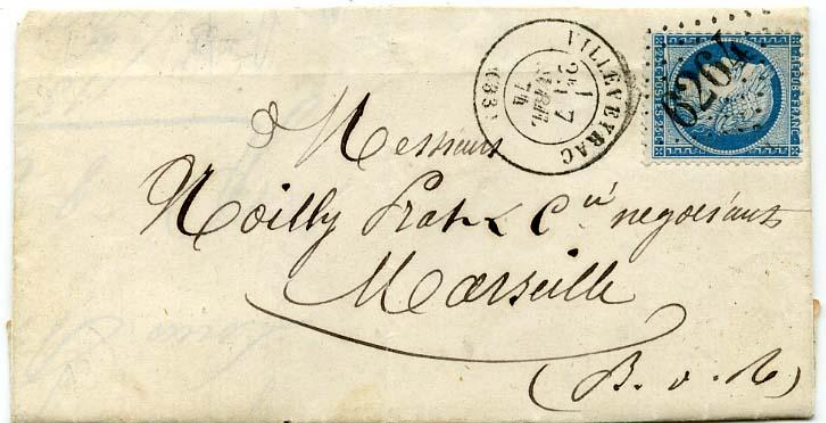 VILLEVEYRAC
2E / 7
AVRIL
74
(33)
6264
REPUB·FRANC·
Messieurs
Noilly Prat & Cie negociants
Marseille
(B. d. R)